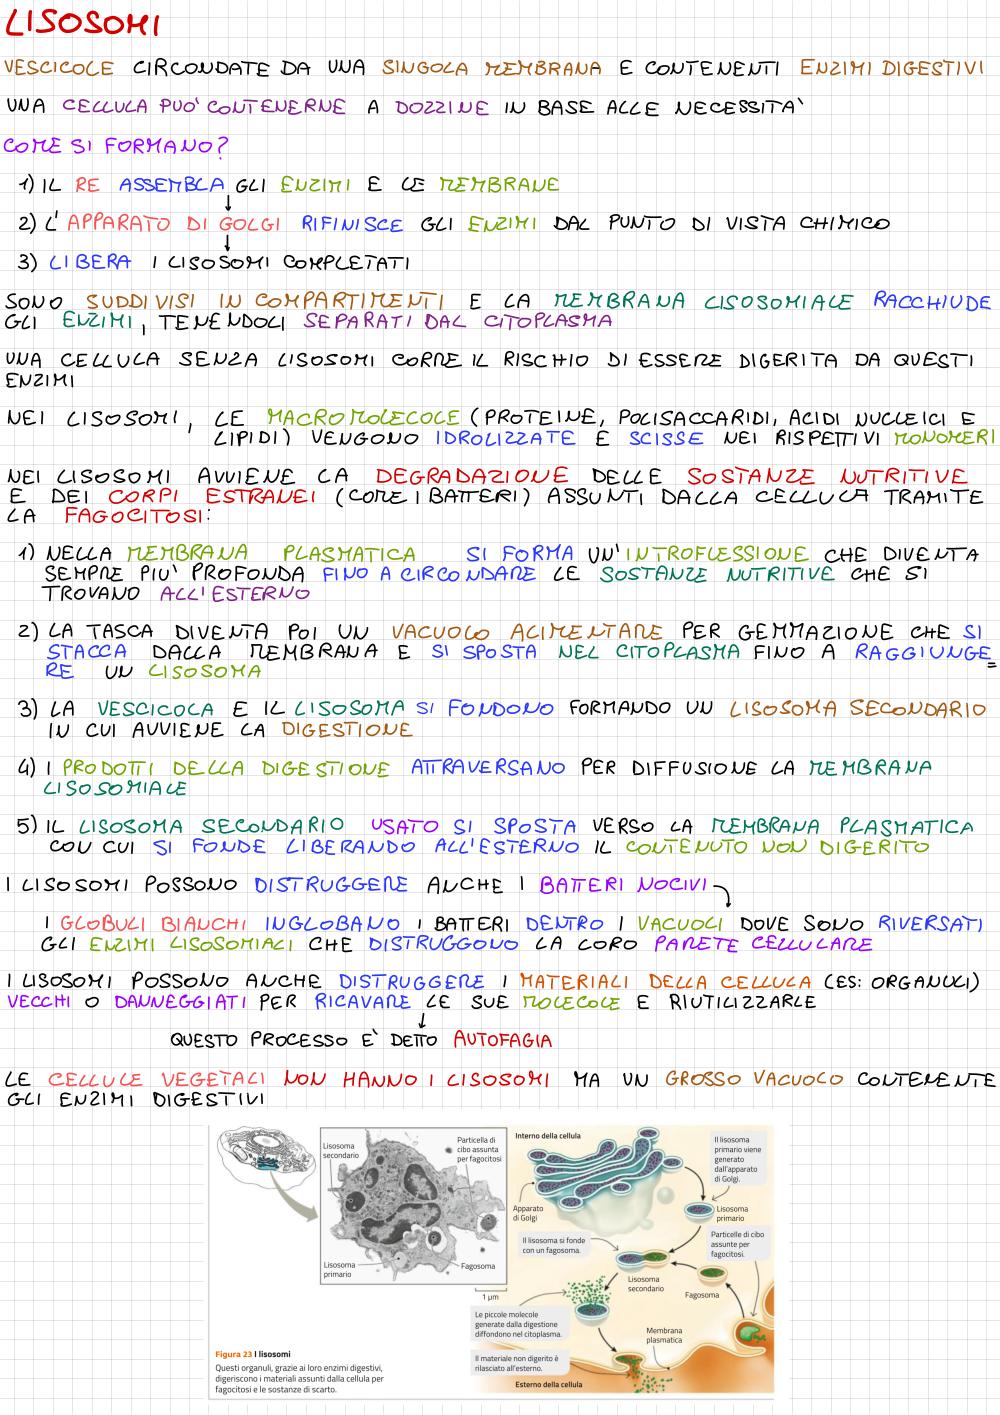 LISOSOMI
VESCICOLE CIRCONDATE DA UNA SINGOLA MEMBRANA E CONTENENTI ENZIMI DIGESTIVI
UNA CELLULA PUO' CONTENERNE A DOZZINE IN BASE ALLE NECESSITA'
COME SI FORMANO?
1) IL RE ASSEMBLA GLI ENZIMI E LE MEMBRANE
2) L'APPARATO DI GOLGI RIFINISCE GLI ENZIMI DAL PUNTO DI VISTA CHIMICO
3) LIBERA I LISOSOMI COMPLETATI
SONO SUDDIVISI IN COMPARTIMENTI E LA MEMBRANA LISOSOMIALE RACCHIUDE
GLI ENZIMI, TENENDOLI SEPARATI DAL CITOPLASMA
UNA CELLULA SENZA LISOSOMI CORRE IL RISCHIO DI ESSERE DIGERITA DA QUESTI
ENZIMI
NEI LISOSOMI, LE MACROMOLECOLE (PROTEINE, POLISACCARIDI, ACIDI NUCLEICI E
LIPIDI) VENGONO IDROLIZZATE E SCISSE NEI RISPETTIVI MONOMERI
NEI LISOSOMI AVVIENE LA DEGRADAZIONE DELLE SOSTANZE NUTRITIVE
E DEI CORPI ESTRANEI (COME I BATTERI) ASSUNTI DALLA CELLULA TRAMITE
LA FAGOCITOSI:
1) NELLA MEMBRANA PLASMATICA SI FORMA UN'INTROFLESSIONE CHE DIVENTA
SEMPRE PIU' PROFONDA FINO A CIRCONDARE LE SOSTANZE NUTRITIVE CHE SI
TROVANO ALL'ESTERNO
2) LA TASCA DIVENTA POI UN VACUOLO ALIMENTARE PER GEMMAZIONE CHE SI
STACCA DALLA MEMBRANA E SI SPOSTA NEL CITOPLASMA FINO A RAGGIUNGE=
RE UN LISOSOMA
3) LA VESCICOLA E IL LISOSOMA SI FONDONO FORMANDO UN LISOSOMA SECONDARIO
IN CUI AVVIENE LA DIGESTIONE
4) I PRODOTTI DELLA DIGESTIONE ATTRAVERSANO PER DIFFUSIONE LA MEMBRANA
LISOSOMIALE
5) IL LISOSOMA SECONDARIO USATO SI SPOSTA VERSO LA MEMBRANA PLASMATICA
CON CUI SI FONDE LIBERANDO ALL'ESTERNO IL CONTENUTO NON DIGERITO
I LISOSOMI POSSONO DISTRUGGERE ANCHE I BATTERI NOCIVI
I GLOBULI BIANCHI INGLOBANO I BATTERI DENTRO I VACUOLI DOVE SONO RIVERSATI
GLI ENZIMI LISOSOMIALI CHE DISTRUGGONO LA LORO PARETE CELLULARE
I LISOSOMI POSSONO ANCHE DISTRUGGERE I MATERIALI DELLA CELLULA (ES: ORGANULI)
VECCHI O DANNEGGIATI PER RICAVARE LE SUE MOLECOLE E RIUTILIZZARLE
QUESTO PROCESSO E' DETTO AUTOFAGIA
LE CELLULE VEGETALI NON HANNO I LISOSOMI MA UN GROSSO VACUOLO CONTENENTE
GLI ENZIMI DIGESTIVI
Lisosoma
secondario
Particella di
cibo assunta
per fagocitosi
Lisosoma
primario
Fagosoma
1 µm
Interno della cellula
Il lisosoma
primario viene
generato
dall'apparato
di Golgi.
Apparato
di Golgi
Lisosoma
primario
Il lisosoma si fonde
con un fagosoma.
Particelle di cibo
assunte per
fagocitosi.
Lisosoma
secondario
Fagosoma
Le piccole molecole
generate dalla digestione
diffondono nel citoplasma.
Membrana
plasmatica
Il materiale non digerito è
rilasciato all'esterno.
Esterno della cellula
Figura 23 I lisosomi
Questi organuli, grazie ai loro enzimi digestivi,
digeriscono i materiali assunti dalla cellula per
fagocitosi e le sostanze di scarto.